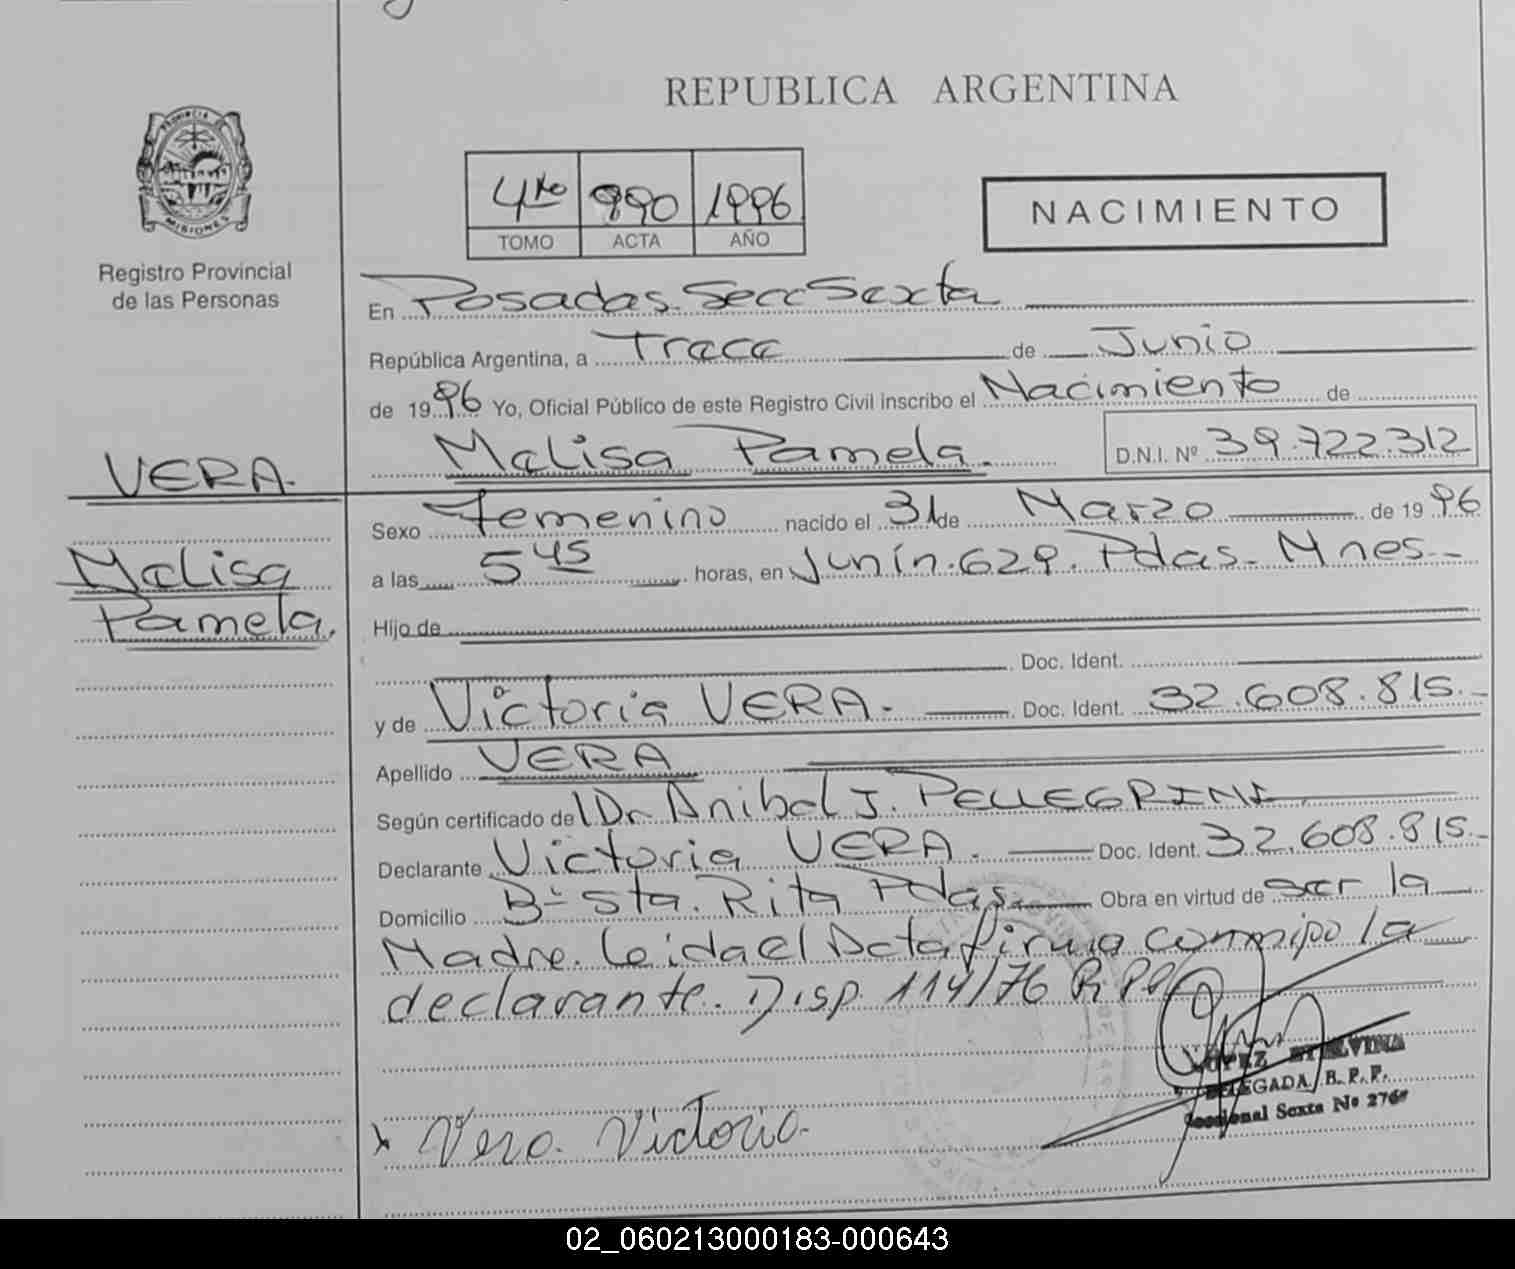 REPUBLICA ARGENTINA
PROVINCIA DE
MISIONES
Registro Provincial
de las Personas
4to 990 1996
TOMO ACTA AÑO
NACIMIENTO
En Posadas. Secc Sexta
República Argentina, a Trece de Junio
de 1996 Yo, Oficial Público de este Registro Civil inscribo el Nacimiento de
Melisa Pamela. D.N.I. Nº 39.722.312
VERA.
Melisa
Pamela.
Sexo Femenino nacido el 31 de Marzo de 1996
a las 5 45 horas, en Junín. 629. Pdas. Mnes.
Hijo de
Doc. Ident.
y de Victoria VERA. Doc. Ident. 32.608.815.
Apellido VERA
Según certificado de Dr. Anibal J. PELLEGRINI
Declarante Victoria VERA. Doc. Ident. 32.608.815.
Domicilio Bº Sta. Rita Pdas. Obra en virtud de ser la
Madre. Leida el Acta firma conmigo la
declarante. Disp. 114/76 R.P.P.
LOPEZ ETELVINA
DELEGADA R.P.P.
Seccional Sexta Nº 276
x Vera. Victoria.
02_060213000183-000643